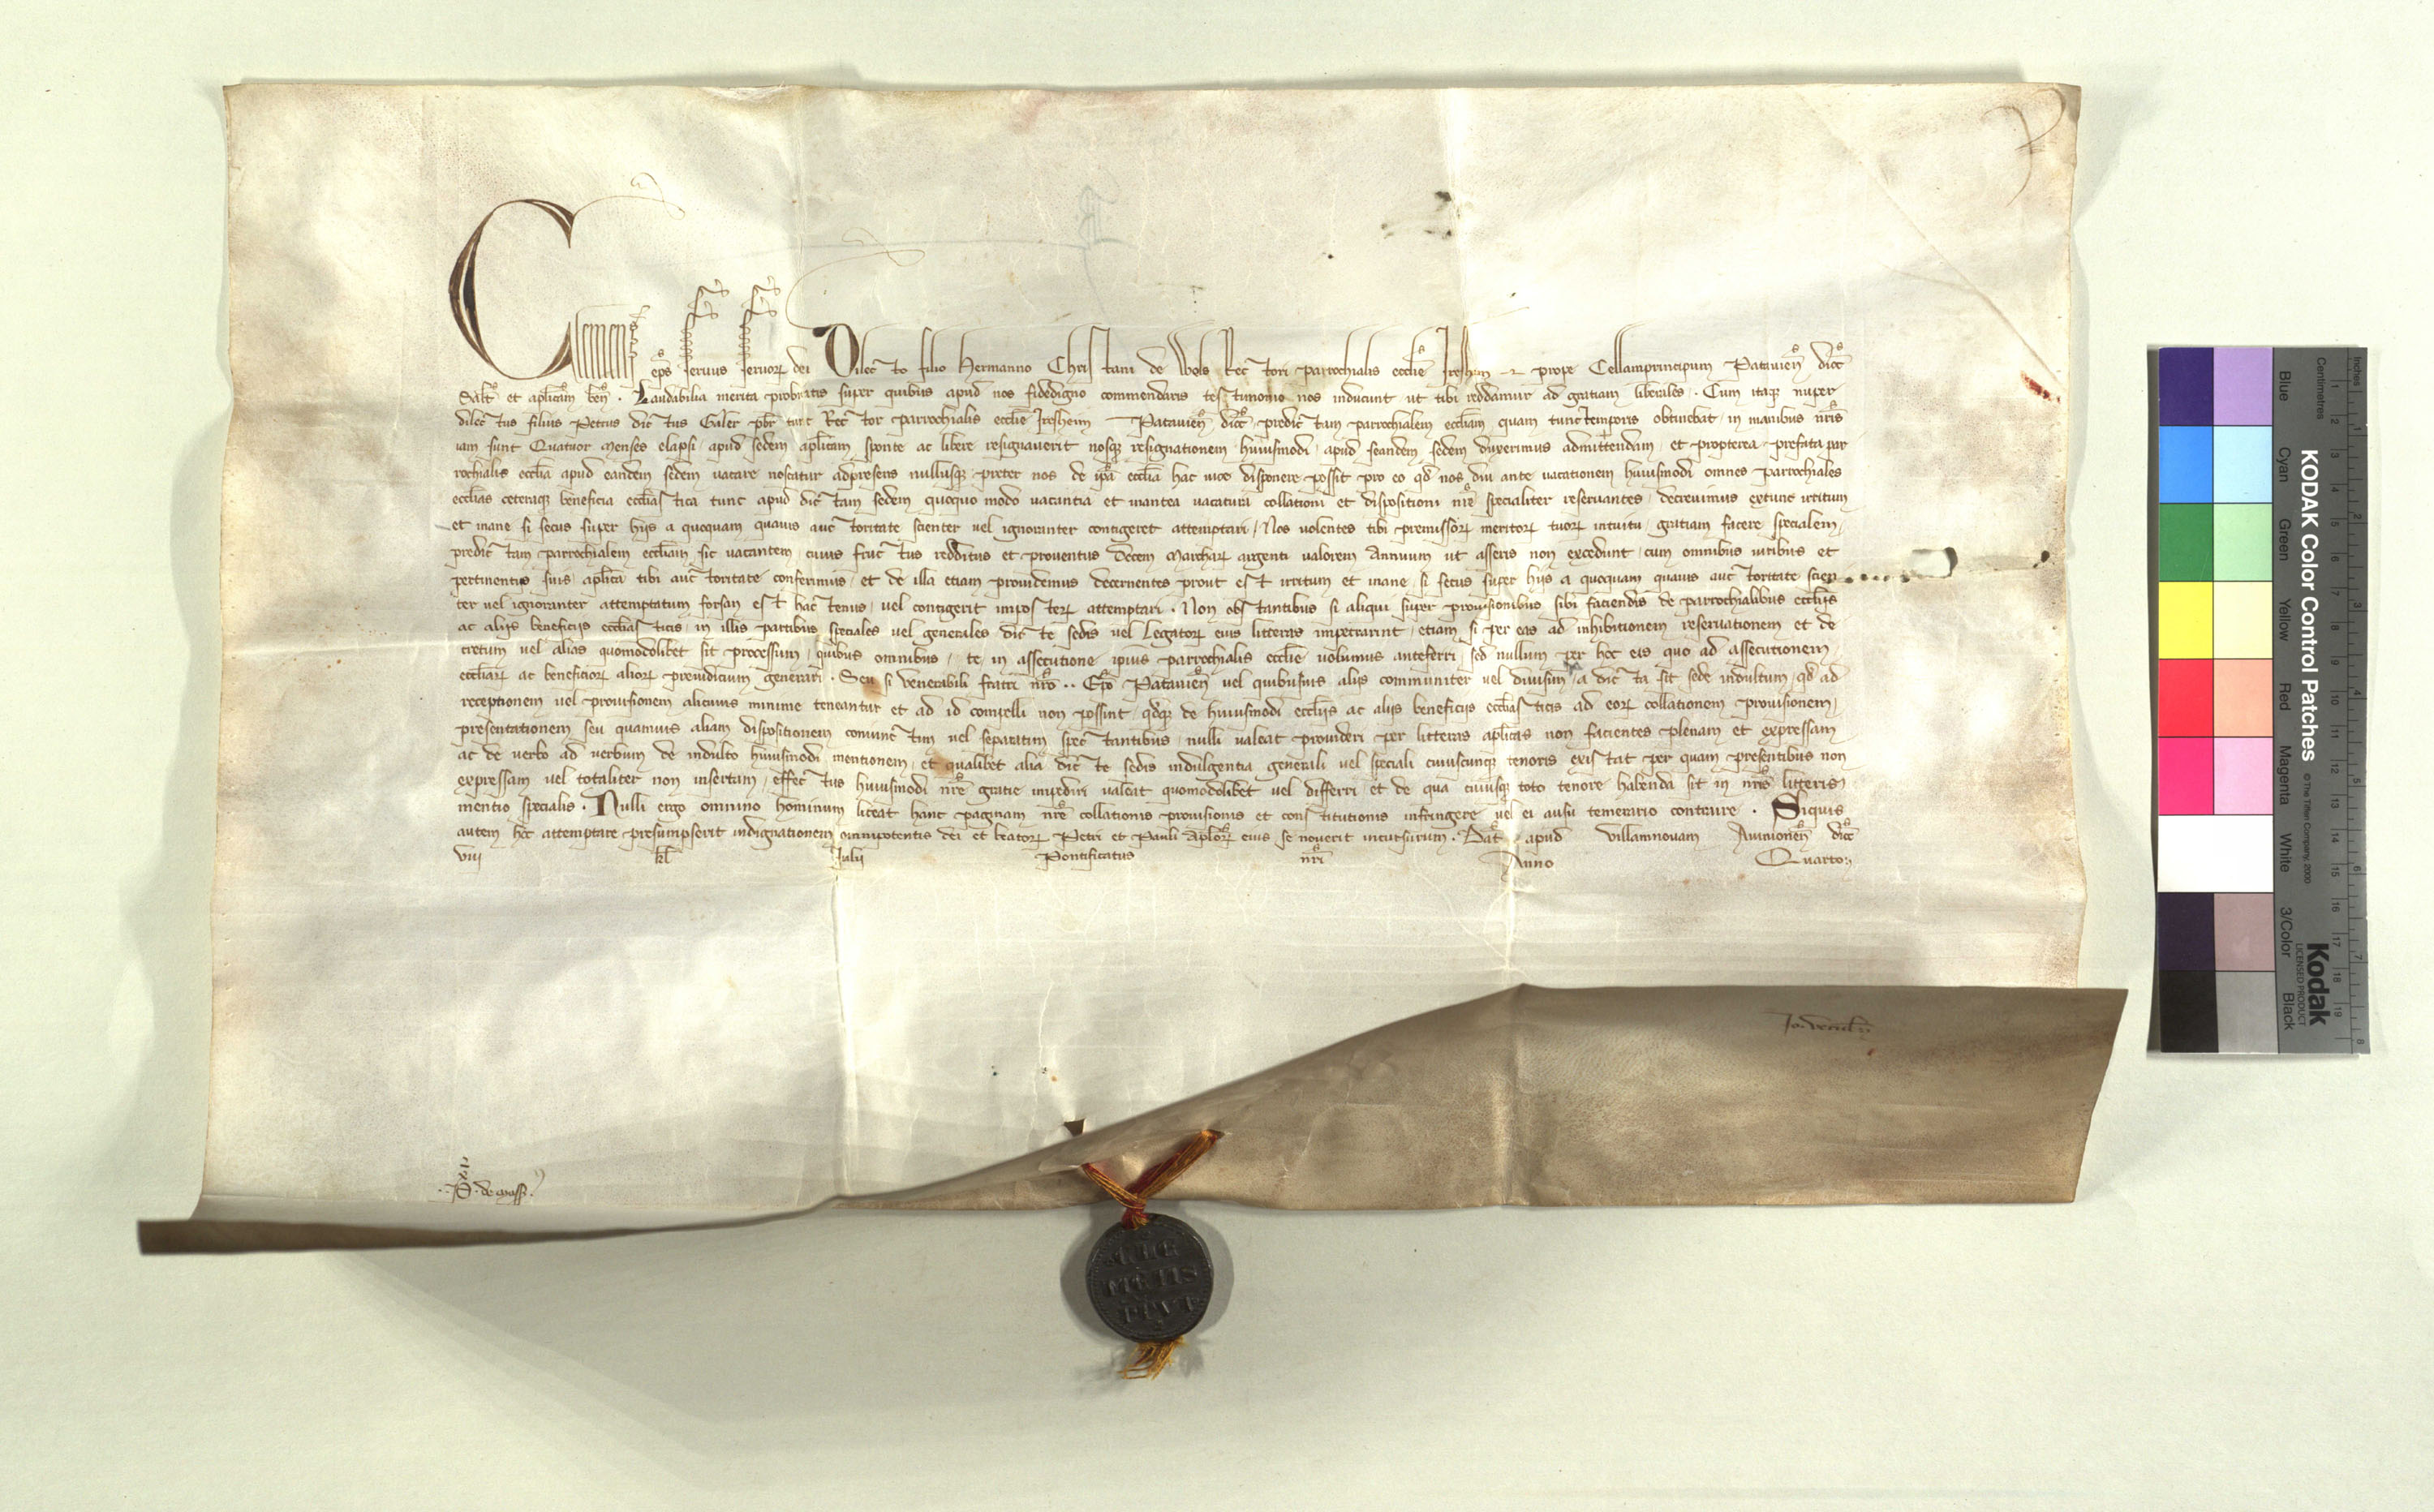 Clemens ep̄s seruus seruoꝝ dei Dilecto filio Hermanno Christani de Wels Rectori parrochialis ecctīe Iresheim prope Cellamprincipum Patauieñ dioc̄
Sal̄t et apl̄icam ben̄ . Laudabilia merita probitatis super quibus apud nos fidedigno commendaris testimonio nos inducunt ut tibi reddamur ad gratiam liberales . Cum itaqꝫ nuper
dilectus filius Petrus dictus Galer pb̄r tunc Rector parrochialis ecctīe Iresheim Patauieñ dioc̄ predictam parrochialem ecctīam quam tunc temporis obtinebat in manibus nr̄is
iam sunt Quatuor menses elapsi apud sedem apl̄icam sponte ac libere resignauerit nosqꝫ resignationem huiusmodi apud eandem sedem duxerimus admittendam et propterea prefata par
rochialis ecctīa apud eandem sedem uacare noscatur adpresens nullusqꝫ preter nos de ip̄a ecctīa hac uice disponere possit pro eo qd̄ nos diu ante uacationem huiusmodi omnes parrochiales
ecctīas ceteraqꝫ beneficia ecctīastica tunc apud dictam sedem quoquo modo uacantia et inantea uacatura collationi et dispositioni nr̄e specialiter reseruantes decreuimus extunc irritum
et inane si secus super hijs a quoquam quauis auctoritate scienter uel ignoranter contigeret attemptari Nos uolentes tibi premissoꝝ meritoꝝ tuoꝝ intuitu gratiam facere specialem
predictam parrochialem ecctīam sic uacantem cuius fructus redditus et prouentus decem Marcharꝝ argenti ualorem Annuum ut asseris non excedunt cum omnibus iuribus et
pertinentijs suis apl̄ica tibi auctoritate conferimus et de illa etiam prouidemus decernentes prout est irritum et inane si secus super hijs a quoquam quauis auctoritate scien
ter uel ignoranter attemptatum forsan est hactenus uel contigerit imposterꝝ attemptari . Non obstantibus si aliqui super prouisionibus sibi faciendis de parrochialibus ecctīis
ac alijs beneficijs ecctīasticis in illis partibus speciales uel generales dicte sedis uel Legatoꝝ eius litteras impetrarint etiam si per eas ad inhibitionem reseruationem et de
cretum uel alias quomodolibet sit processum quibus omnibus te in assecutione ipius parrochialis ecctīe uolumus anteferri sed nullum per hoc eis quo ad assecutionem
ecctīarꝝ ac beneficioꝝ alioꝝ preiudicium generari . Seu si venerabili fratri nr̄o .. Ep̄o Patauieñ uel quibusuis alijs communiter uel diuisim a dicta sit sede indultum qd̄ ad
receptionem uel prouisionem alicuius minime teneantur et ad id compelli non possint qd̄qꝫ de huiusmodi ecctīis ac alijs beneficijs ecctīasticis ad eoꝝ collationem prouisionem
presentationem seu quamuis aliam dispositionem coniunctim uel separatim spectantibus nulli ualeat prouideri per litteras apl̄icas non facientes plenam et expressam
ac de uerbo ad uerbum de indulto huiusmodi mentionem et qualibet alia dicte sedis indulgentia generali uel speciali cuiuscunqꝫ tenoris existat per quam presentibus non
expressam uel totaliter non insertam effectus huiusmodi nr̄e gratie impediri ualeat quomodolibet uel differri et de qua cuiusqꝫ toto tenore habenda sit in nr̄is litteris
mentio specialis . Nulli ergo omnino hominum liceat hanc paginam nr̄e collationis prouisionis et constitutionis infringere uel ei ausu temerario contraire . Siquis
autem hoc attemptare presumpserit indignationem omnipotentis dei et beatoꝝ Petri et Pauli ap̄loꝝ eius se nouerit incursurum . Dat̄ apud Villamnouam Auinioneñ dioc̄
viij kl̄ Iulii Pontificatus nr̄i Anno Quarto
P. de
CLE
MENS
PP VI
KODAK Color Control Patches
© The Tiffen Company, 2000
Kodak
LICENSED PRODUCT
Blue Cyan Green Yellow Red Magenta White 3/Color Black
Centimetres 1 2 3 4 5 6 7 8 9 10 11 12 13 14 15 16 17 18 19
Inches 1 2 3 4 5 6 7 8